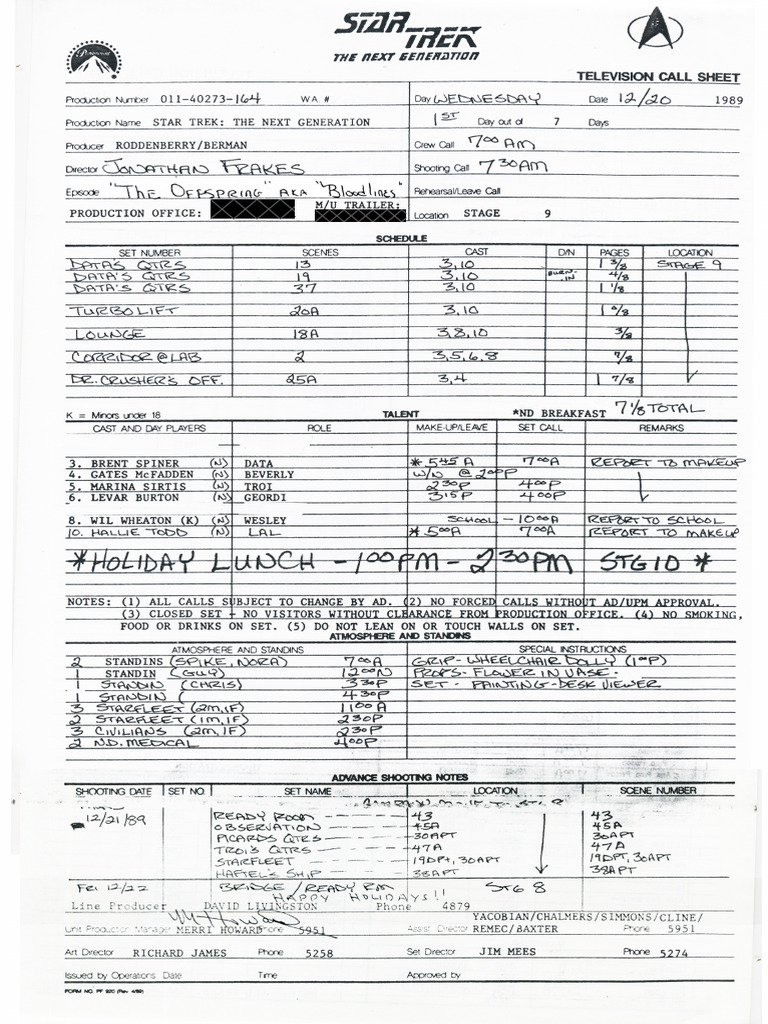 Paramount
STAR TREK
THE NEXT GENERATION
TELEVISION CALL SHEET
Production Number 011-40273-164 W.A. # Day WEDNESDAY Date 12/20 1989
Production Name STAR TREK: THE NEXT GENERATION 1ST Day out of 7 Days
Producer RODDENBERRY/BERMAN Crew Call 7:00 AM
Director JONATHAN FRAKES Shooting Call 7:30AM
Episode "THE OFFSPRING" AKA "Bloodlines" Rehearsal/Leave Call
PRODUCTION OFFICE: M/U TRAILER: Location STAGE 9
SCHEDULE
SET NUMBER SCENES CAST D/N PAGES LOCATION
DATA'S QTRS 13 3,10 1 3/8 STAGE 9
DATA'S QTRS 19 3,10 BURN-IN 4/8
DATA'S QTRS 37 3,10 1 1/8
TURBOLIFT 20A 3,10
LOUNGE 18A 3,8,10 3/8
CORRIDOR @ LAB 2 3,5,6,8 7/8
DR. CRUSHER'S OFF. 25A 3,4 1 7/8
K = Minors under 18 TALENT *ND BREAKFAST 7 1/8 TOTAL
CAST AND DAY PLAYERS ROLE MAKE-UP/LEAVE SET CALL REMARKS
3. BRENT SPINER (N) DATA * 545A 700A REPORT TO MAKEUP
4. GATES McFADDEN (N) BEVERLY W/N @ 200P
5. MARINA SIRTIS (N) TROI 230P 400P
6. LEVAR BURTON (N) GEORDI 315P 400P
8. WIL WHEATON (K) (N) WESLEY SCHOOL - 1000A REPORT TO SCHOOL
10. HALLIE TODD (N) LAL * 500A 700A REPORT TO MAKEUP
*HOLIDAY LUNCH - 100PM - 230PM STG 10 *
NOTES: (1) ALL CALLS SUBJECT TO CHANGE BY AD. (2) NO FORCED CALLS WITHOUT AD/UPM APPROVAL.
(3) CLOSED SET - NO VISITORS WITHOUT CLEARANCE FROM PRODUCTION OFFICE. (4) NO SMOKING,
FOOD OR DRINKS ON SET. (5) DO NOT LEAN ON OR TOUCH WALLS ON SET.
ATMOSPHERE AND STANDINS
ATMOSPHERE AND STANDINS SPECIAL INSTRUCTIONS
2 STANDINS (SPIKE, NORA) 700A GRIP - WHEELCHAIR DOLLY (100P)
1 STANDIN (GUY) 1200N PROPS - FLOWER IN VASE -
1 STANDIN (CHRIS) 330P SET - PAINTING - DESK VIEWER
1 STANDIN ( 430P
3 STARFLEET (2M,1F) 1100A
2 STARFLEET (1M,1F) 230P
3 CIVILIANS (2M,1F) 230P
2 N.D. MEDICAL 400P
ADVANCE SHOOTING NOTES
SHOOTING DATE SET NO. SET NAME LOCATION SCENE NUMBER
12/21/89 READY ROOM 43 43
OBSERVATION 45A 45A
PICARDS QTRS 30APT 30APT
TROI'S QTRS 47A 47A
STARFLEET 19DPT, 30APT 19DPT, 30APT
HAFTEL'S SHIP 38APT 38APT
Fri 12/22 BRIDGE/READY RM STG 8
HAPPY HOLIDAYS!!
Line Producer DAVID LIVINGSTON Phone 4879
YACOBIAN/CHALMERS/SIMMONS/CLINE/
Unit Production Manager MERRI HOWARD Phone 5951 Assist. Director REMEC/BAXTER Phone 5951
Art Director RICHARD JAMES Phone 5258 Set Director JIM MEES Phone 5274
Issued by Operations Date Time Approved by
FORM NO. PF 920 (Rev. 4/89)